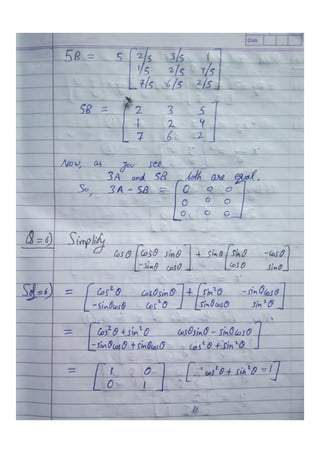 Date
5B = 5 [2/5 3/5 1
1/5 2/5 4/5
7/5 6/5 2/5]
5B = [2 3 5
1 2 4
7 6 2]
Now, as you see
3A and 5B both are equal.
So, 3A - 5B = [0 0 0
0 0 0
0 0 0]
Q=6) Simplify
cosθ [cosθ sinθ
-sinθ cosθ] + sinθ [sinθ -cosθ
cosθ sinθ]
Sol=6) = [cos²θ cosθsinθ
-sinθcosθ cos²θ] + [sin²θ -sinθcosθ
sinθcosθ sin²θ]
= [cos²θ + sin²θ cosθsinθ - sinθcosθ
-sinθcosθ + sinθcosθ cos²θ + sin²θ]
= [1 0
0 1] [∵ cos²θ + sin²θ = 1]